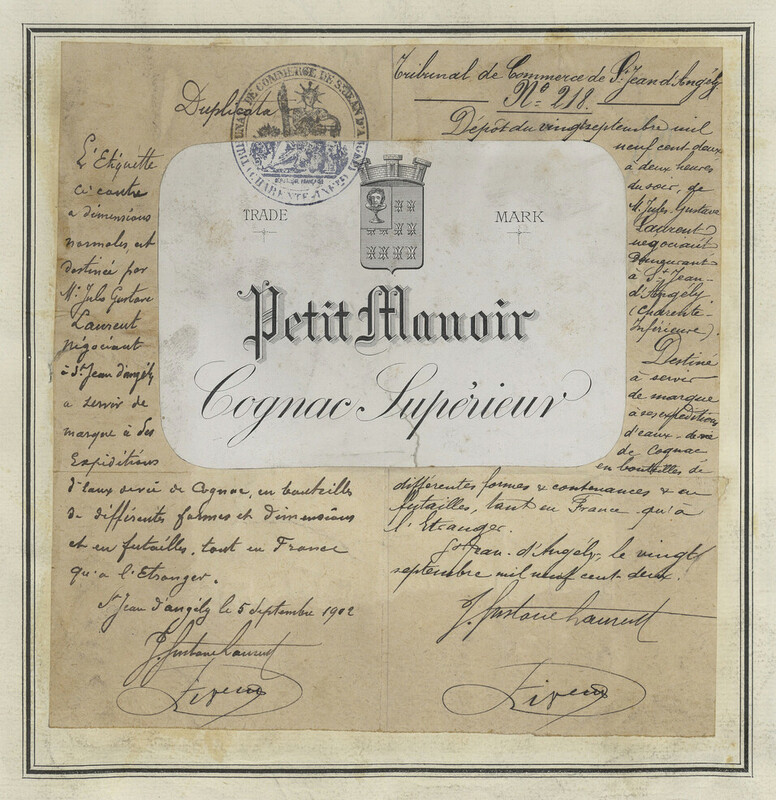 Duplicata
TRIBUNAL DE COMMERCE DE ST JEAN D'ANGELY
(CHARENTE-INFRE)
L'Etiquette
Ci contre
a dimensions
normales est
destinée par
Mr Jules Gustave
Laurent
négociant
à St Jean d'angély
a servir de
marque à ses
Expéditions
d'eaux de vie de Cognac, en bouteilles
de différentes formes et dimensions
et en futailles, tant en France
qu'a l'Etranger.
St Jean d'angély le 5 septembre 1902
J. Gustave Laurent
TRADE MARK
Petit Manoir
Cognac Supérieur
Tribunal de Commerce de St Jean d'Angély
No 218.
Dépôt du vingt septembre mil
neuf cent deux
à deux heures
du soir, de
M. Jules Gustave
Laurent
négociant
demeurant
à St Jean-
d'Angély
(Charente-
Inférieure).
Destiné
à servir
de marque
à ses expéditions
d'eaux-de-vie
de Cognac
en bouteilles de
différentes formes & contenances & en
futailles, tant en France qu'à
l'Etranger.
St Jean-d'Angély, le vingt
septembre mil neuf cent deux.
J. Gustave Laurent